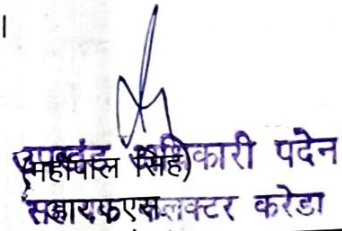 ।
(महीपाल सिंह)
उपखंड अधिकारी पदेन
सहायक कलक्टर करेडा